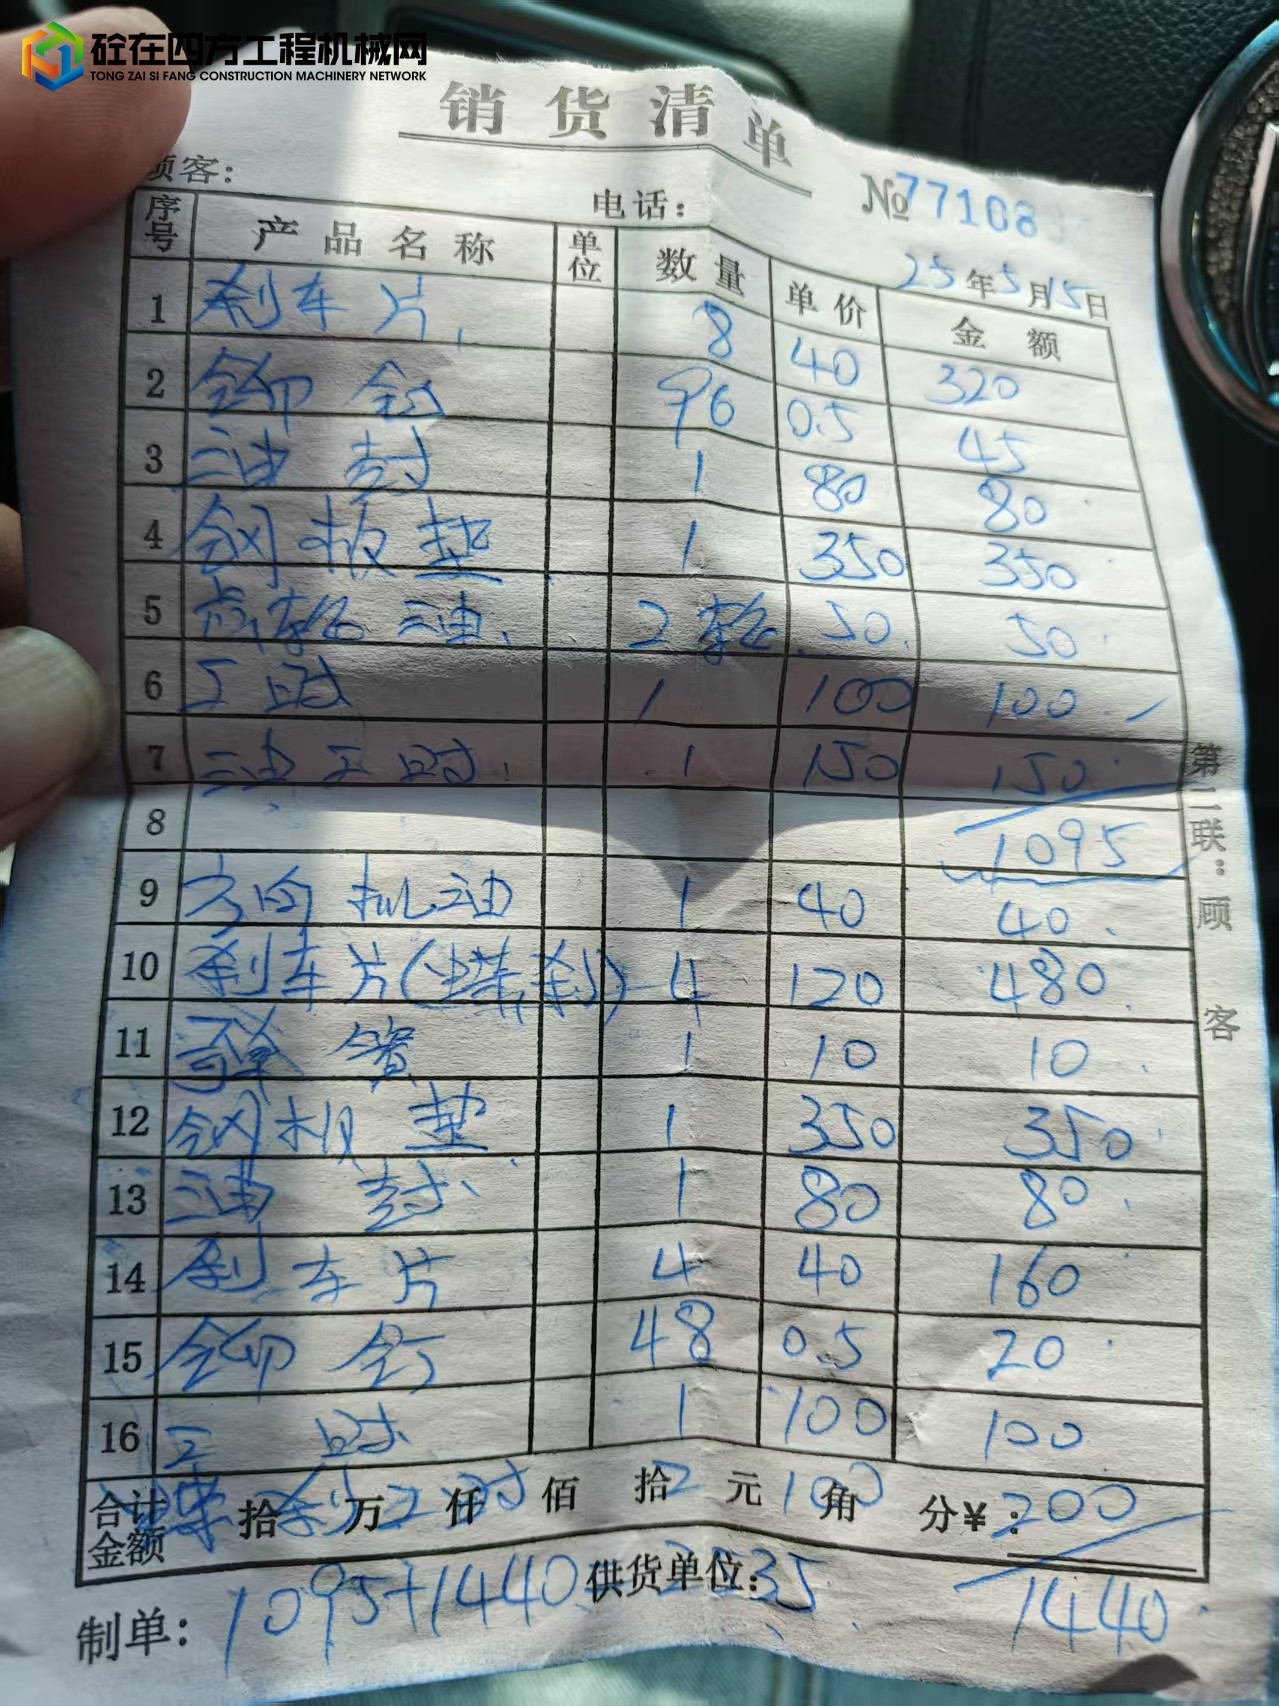 砼在四方工程机械网
TONG ZAI SI FANG CONSTRUCTION MACHINERY NETWORK
销货清单
顾客： 电话： №77108
25年5月15日
序号 产品名称 单位 数量 单价 金额
1 刹车片 8 40 320
2 铆钉 96 0.5 45
3 油封 1 80 80
4 钢板垫 1 350 350
5 油 2 50 50
6 工时 1 100 100
7 油工时 1 150 150
8 1095
9 方向机油 1 40 40
10 刹车片(碟刹) 4 120 480
11 弹簧 1 10 10
12 钢板垫 1 350 350
13 油封 1 80 80
14 刹车片 4 40 160
15 铆钉 48 0.5 20
16 工时 1 100 100
合计金额 拾 万 仟 佰 拾 元 角 分¥：
碟刹工时 2 100 200
制单： 供货单位：
1095+1440 2535 1440
第二联：顾客